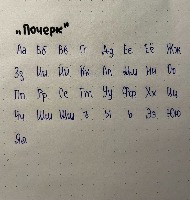 „Почерк"
Аа Бб Вв Гг Дд Ее Ёё Жж
Зз Ии Йй Кк Лл Мм Нн Оо
Пп Рр Сс Тт Уу Фф Хх Цц
Чч Шш Щщ ъ ы ь Ээ Юю
Яя